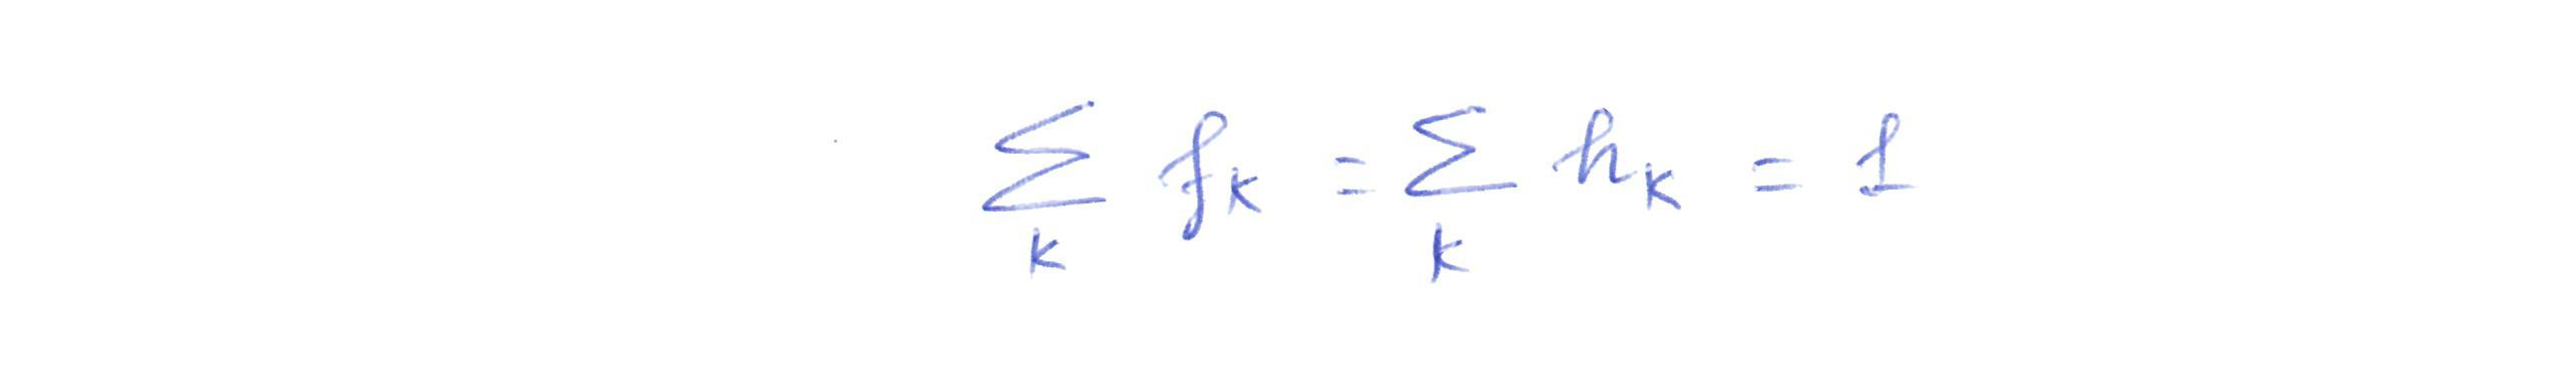 \sum_{k} f_k = \sum_{k} h_k = 1